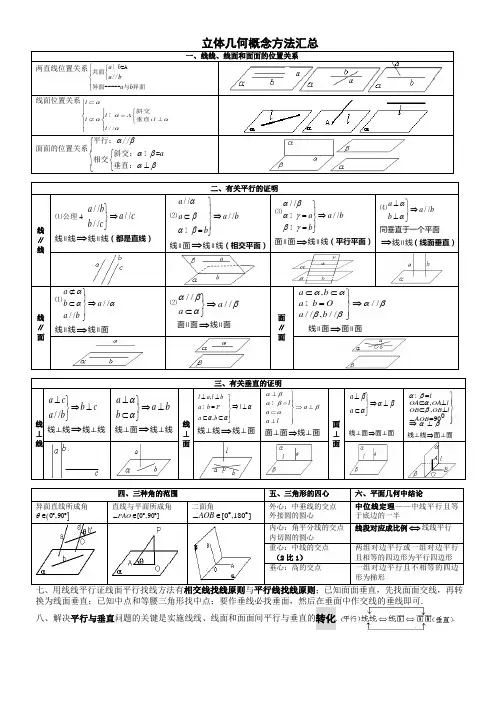 立体几何概念方法汇总
一、线线、线面和面面的位置关系
两直线位置关系
共面
a⋮b=A
a//b
异面-----a与b异面
线面位置关系
l⊂α
l⊄α
l⋮α=A
斜交
垂直
l⊥α
l//α
面面的位置关系
平行：α//β
相交
斜交：α⋮β=a
垂直：α⊥β
二、有关平行的证明
线∥线
⑴公理 4
a//b
b//c
⇒a//c
线∥线⇒线∥线（都是直线）
⑵
a//α
a⊂β
α⋮β=b
⇒a//b
线∥面⇒线∥线（相交平面）
⑶
α//β
α⋮γ=a
β⋮γ=b
⇒a//b
面∥面⇒线∥线（平行平面）
⑷
a⊥α
b⊥α
⇒a//b
同垂直于一个平面
⇒线∥线（线面垂直）
线∥面
⑴
a⊄α
b⊂α
a//b
⇒a//α
线∥线⇒线∥面
⑵
α//β
a⊂α
⇒a//β
面∥面⇒线∥面
面∥面
a⊂α,b⊂α
a⋮b=O
a//β,b//β
⇒α//β
线∥面⇒面∥面
三、有关垂直的证明
线⊥线
a⊥c
a//b
⇒b⊥c
线⊥线⇒线⊥线
a⊥α
b⊂α
⇒a⊥b
线⊥面⇒线⊥线
线⊥面
l⊥a,l⊥b
a⋮b=P
a⊂α,b⊂α
⇒l⊥α
线⊥线⇒线⊥面
α⊥β
α⋮β=l
a⊂α
a⊥l
⇒a⊥β
面⊥面⇒线⊥面
面⊥面
a⊥β
a⊂α
⇒α⊥β
线⊥面⇒面⊥面
α⋮β=l
OA⊂α,OA⊥l
OB⊂β,OB⊥l
∠AOB=90⁰
⇒α⊥β
线⊥线⇒面⊥面
四、三种角的范围
五、三角形的四心
六、平面几何中结论
异面直线所成角
θ∈(0°,90°]
直线与平面所成角
∠PAO∈[0°,90°]
二面角
∠AOB∈[0°,180°]
外心：中垂线的交点
外接圆的圆心
中位线定理——中线平行且等于底边的一半
内心：角平分线的交点
内切圆的圆心
线段对应成比例⇔线线平行
重心：中线的交点
（2 比 1）
两组对边平行或一组对边平行且相等的四边形为平行四边形
垂心：高的交点
一组对边平行且不相等的四边形为梯形
七、用线线平行证线面平行找线方法有相交线找线原则与平行线找线原则；已知面面垂直，先找面面交线，再转
换为线面垂直；已知中点和等腰三角形找中点；要作垂线必找垂面，然后在垂面中作交线的垂线即可.
八、解决平行与垂直问题的关键是实施线线、线面和面面间平行与垂直的转化 (平行)线线⇔线面⇔面面(垂直).